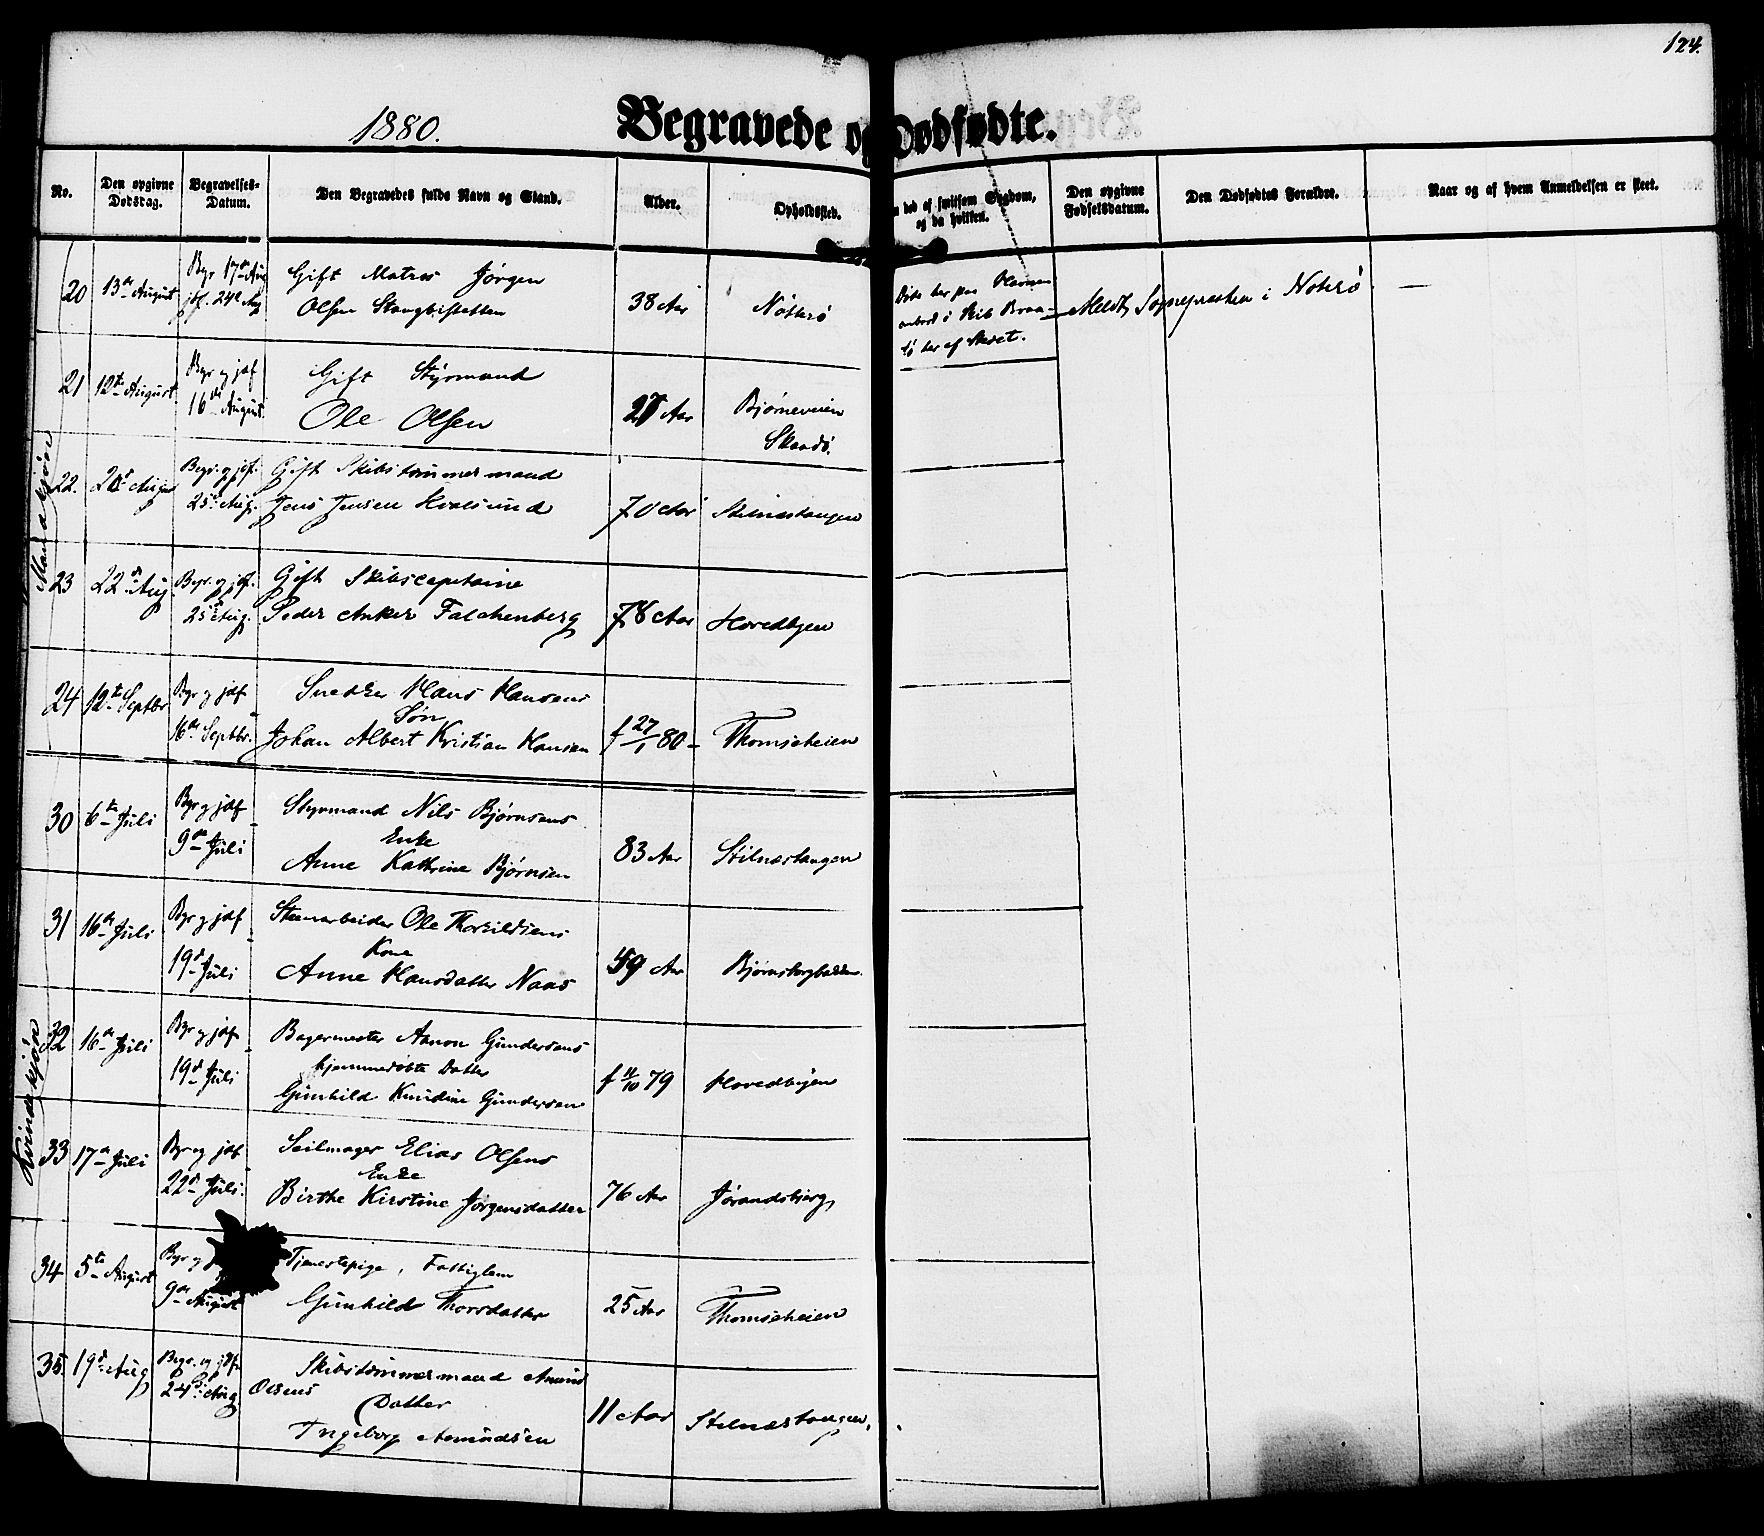 124.
1880.
Begravede og Dødfødte.
No.
Den opgivne Dødsdag.
Begravelses-Datum.
Den Begravedes fulde Navn og Stand.
Alder.
Opholdssted.
død af smitsom Sygdom, og da hvilken.
Den opgivne Fødselsdatum.
Den Dødfødtes Forældre.
Naar og af hvem Anmeldelsen er skeet.
Mandkjøn
20 13de August Bgr 17de Aug
jdf. 24de Aug
Gift Matros Jörgen
Olsen
38 Aar Nötterö
Döde her paa Havnen
ombord i Skib
Meldt Sognepræsten i Nöterö —
21 12te August Bgr og jdf
16de August
Gift Styrmand
Ole Olsen
27 Aar Bjørneveien
Skaadö.
22. Aug Begr. og jdf.
25de Aug.
Gift Skibstömmermand
Jens Jensen Kvalsund
70 Aar Stilnæstangen
23 22de Aug Begr. og jdf.
25de Aug.
Gift Skibscapitaine
Peder Anker Falchenberg
78 Aar Hovedbyen
24 12te Septbr Bgr og jdf
16de Septbr.
Snedker Hans Hansens
Sön
Johan Albert Kristian Hansen
f 27/1 80 - Thomseheien
Kvindekjøn
30 6te Juli Bgr og jdf
9de Juli
Styrmand Nils Bjørnsens
Enke
Anne Kathrine Bjørnsen
83 Aar Stilnæstangen
31 16de Juli Bgr og jdf
19de Juli
Stenarbeider Ole Thorkildsens
Kone
Anne Hansdatter Naas
59 Aar
32 16de Juli Bgr og jdf
19de Juli
Bagermester Aanon Gundersens
hjemmedøbte Datter
Gunhild Knudine Gundersen
f 11/10 79 Hovedbyen
33 17de Juli Bgr og jdf
22de Juli.
Seilmager Elias Olsens
Enke
Birthe Kirstine Jörgensdatter
76 Aar Jørandsbjerg
34 5te August Bgr og
9de August
Tjenestepige, Fattiglem
Gunhild Thorsdatter
25 Aar Thomseheien
35. 19de Aug Begr. og jdf.
24de Aug
Skibstömmermand Amund
Olsens
Datter
Ingeborg Amundsen
11 Aar Stilnæstangen.